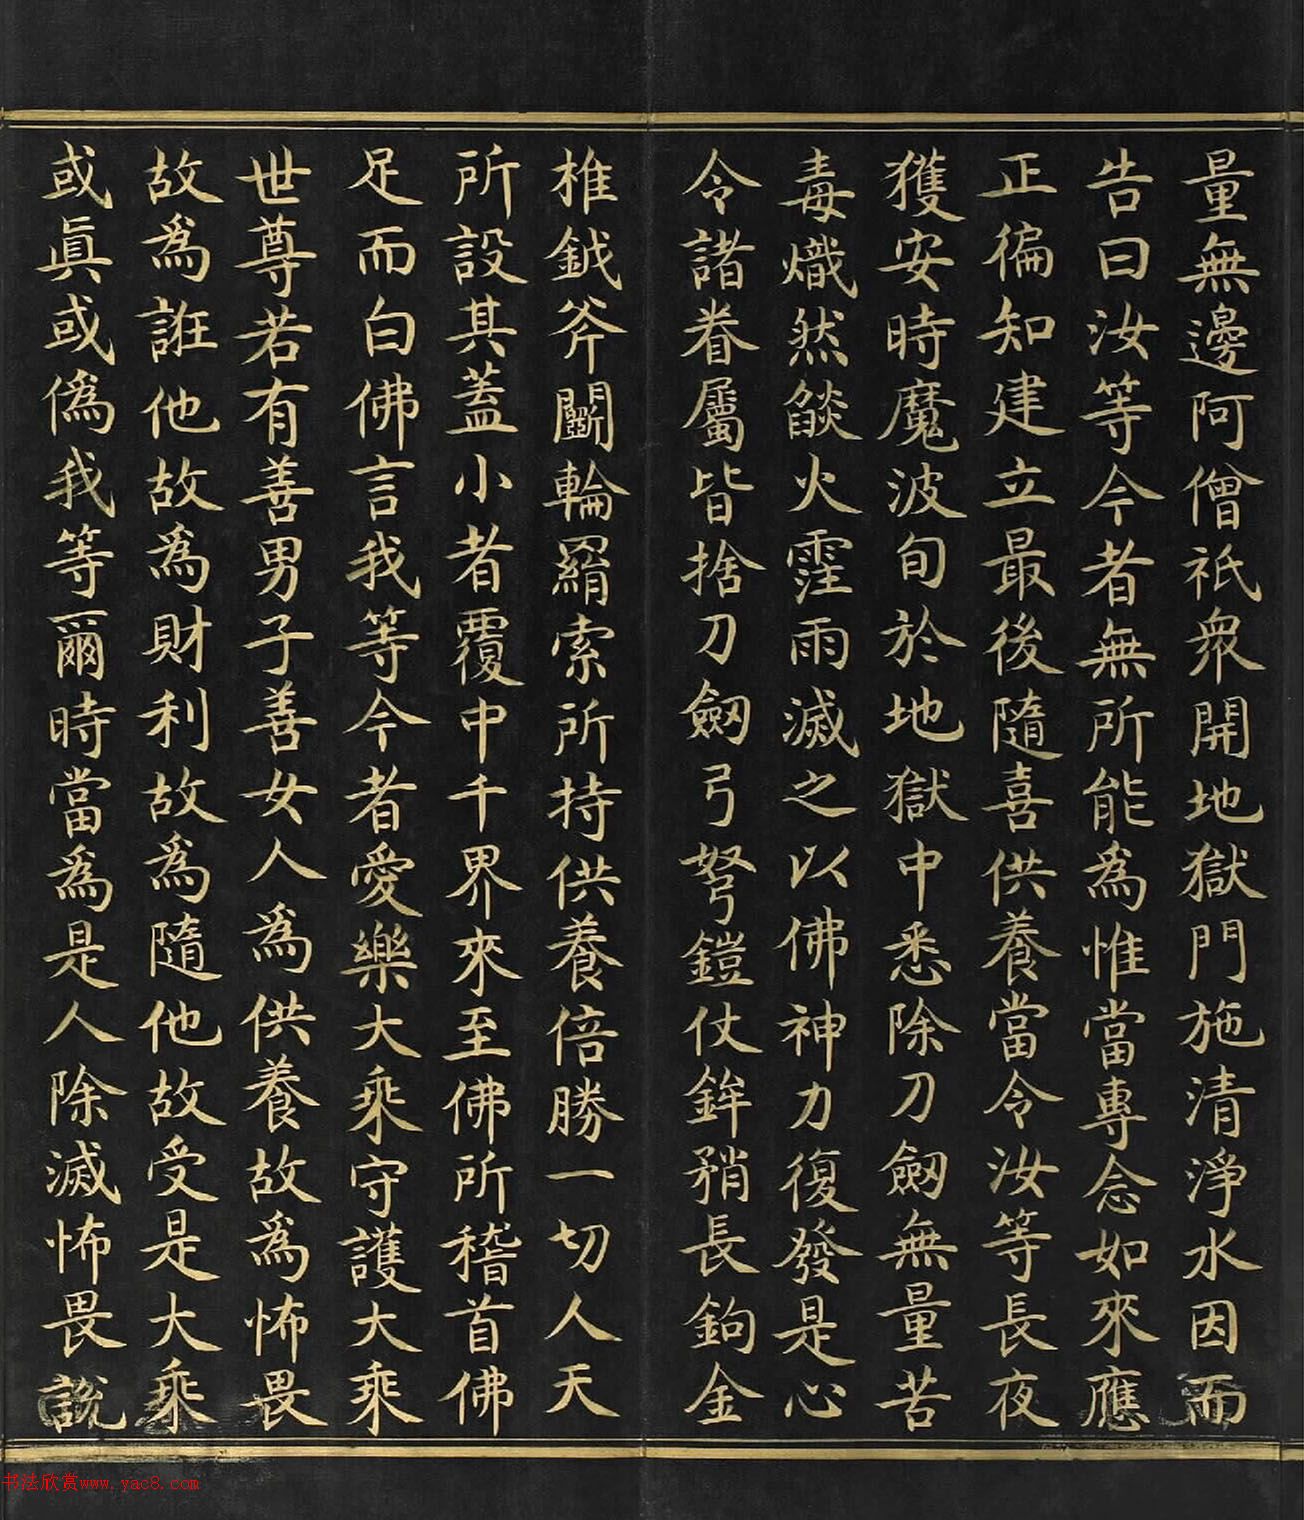 量無邊阿僧祇衆開地獄門施清淨水因而
告曰汝等今者無所能為惟當專念如來應
正徧知建立最後隨喜供養當令汝等長夜
獲安時魔波旬於地獄中悉除刀劒無量苦
毒熾然燄火霔雨滅之以佛神力復發是心
令諸眷屬皆捨刀劒弓弩鎧仗鉾矟長鉤金
椎鉞斧鬭輪羂索所持供養倍勝一切人天
所設其蓋小者覆中千界來至佛所稽首佛
足而白佛言我等今者愛樂大乘守護大乘
世尊若有善男子善女人為供養故為怖畏
故為誑他故為財利故為隨他故受是大乘
或眞或偽我等爾時當為是人除滅怖畏說
书法欣赏www.yac8.com